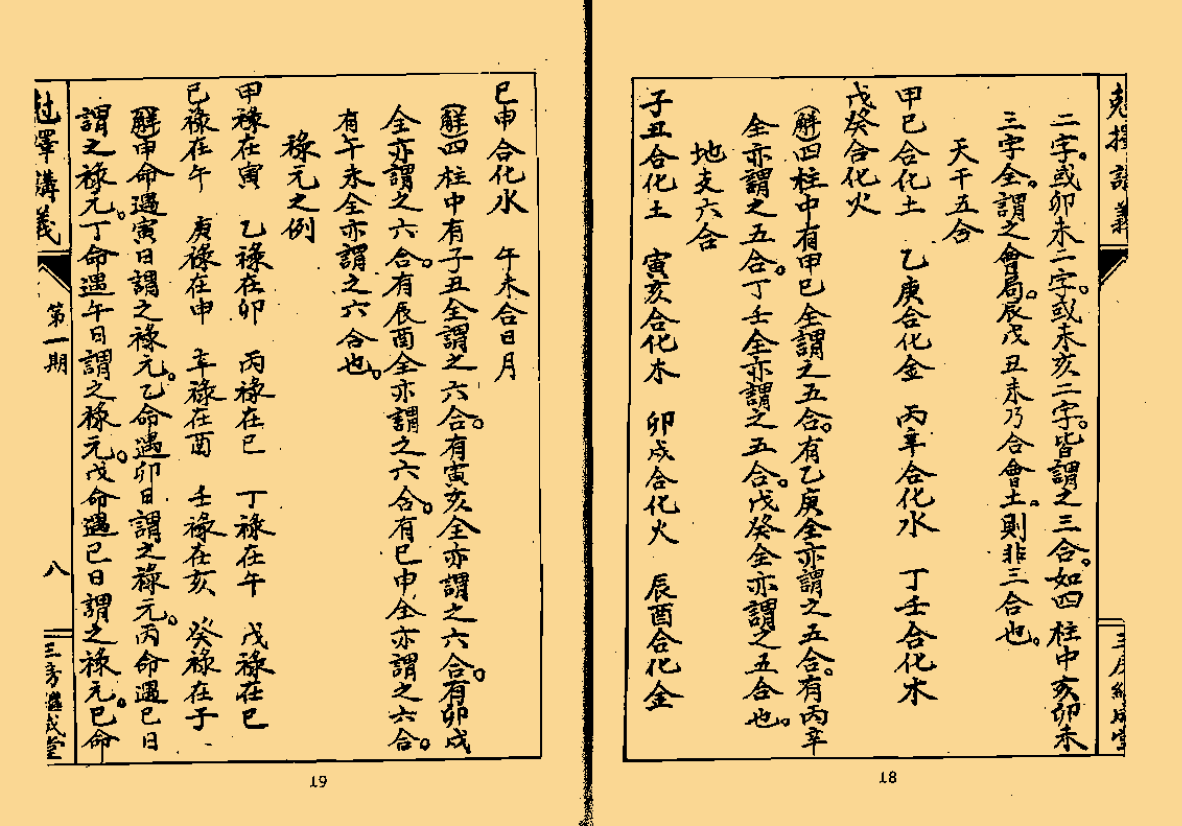 剋擇講義
二字。或卯未二字。或未亥二字。皆謂之三合。如四柱中亥卯未
三字全。謂之會局。辰戌丑未乃合會土。則非三合也。
天干五合
甲己合化土　乙庚合化金　丙辛合化水　丁壬合化木
戊癸合化火
(解)四柱中有甲己全謂之五合。有乙庚全亦謂之五合。有丙辛
全亦謂之五合。丁壬全亦謂之五合。戊癸全亦謂之五合也。
地支六合
子丑合化土　寅亥合化木　卯戌合化火　辰酉合化金
三房繼成堂
18
巳申合化水　午未合日月
(解)四柱中有子丑全謂之六合。有寅亥全亦謂之六合。有卯戌
全亦謂之六合。有辰酉全亦謂之六合。有巳申全亦謂之六合。
有午未全亦謂之六合也。
祿元之例
甲祿在寅　乙祿在卯　丙祿在巳　丁祿在午　戊祿在巳
己祿在午　庚祿在申　辛祿在酉　壬祿在亥　癸祿在子
(解)甲命遇寅日謂之祿元。乙命遇卯日謂之祿元。丙命遇巳日
謂之祿元。丁命遇午日謂之祿元。戊命遇巳日謂之祿元。己命
剋擇講義　第一期　八　三房繼成堂
19